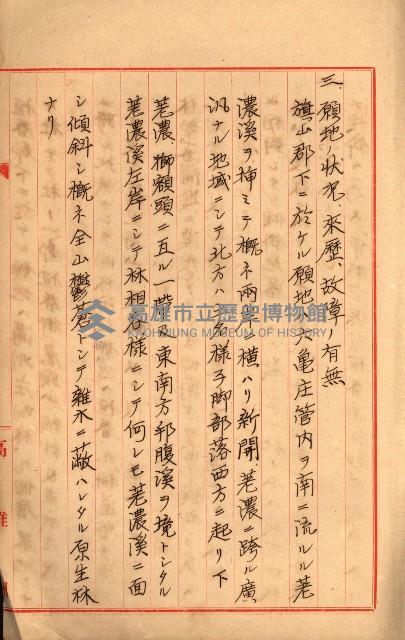 三、願地ノ狀況、來歷、故障ノ有無
旗山郡下ニ於ケル願地ハ六龜庄管内ヲ南ニ流ルル荖
濃溪ヲ挿ミテ概ネ兩 ニ横ハリ新開、荖濃ニ跨ル廣
汎ナル地域ニシテ北方ハ 樣子脚部落西方ニ起リ下
荖濃、獅額頭ニ亙ル一 東南方邦腹溪ヲ境トシタル
荖濃溪左岸ニシテ林相各樣ニシテ何レモ荖濃溪ニ面
シ傾斜シ概ネ全山鬱蒼トシテ雜木ニ蔽ハレタル原生林
ナリ
高雄市立歷史博物館
KAOHSIUNG MUSEUM OF HISTORY
高雄